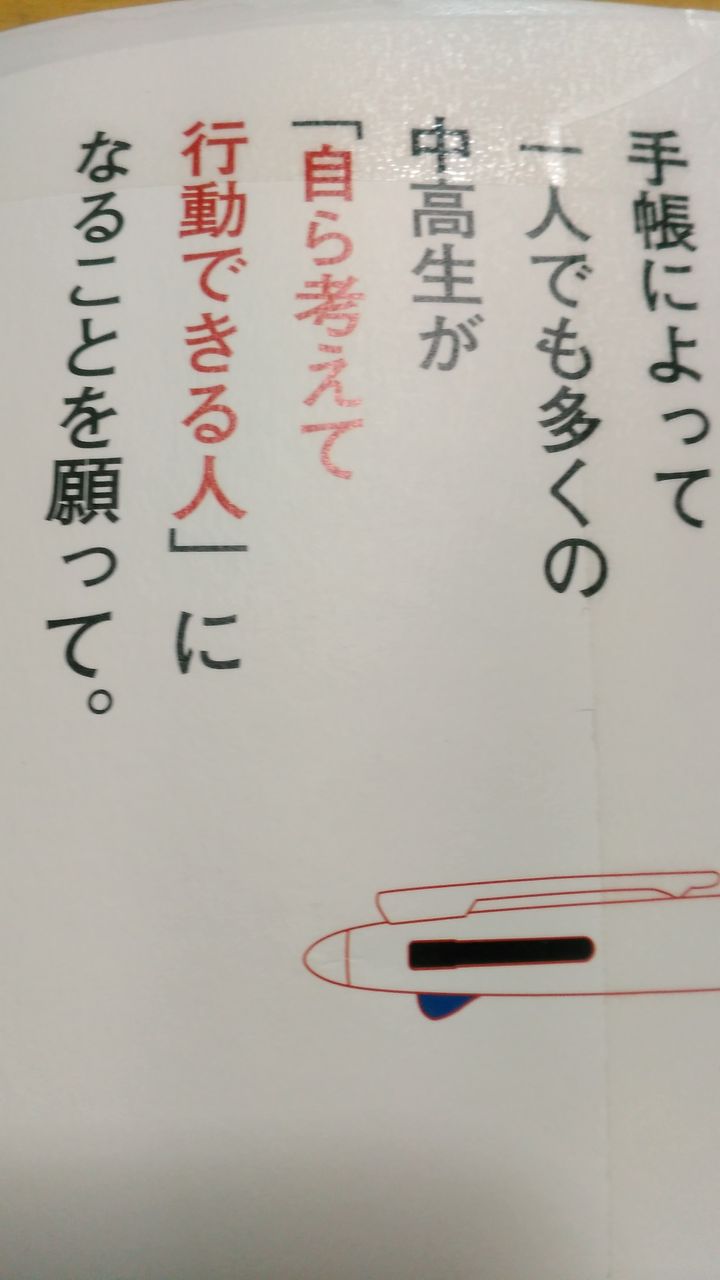 手帳によって
一人でも多くの
中高生が
「自ら考えて
行動できる人」に
なることを願って。